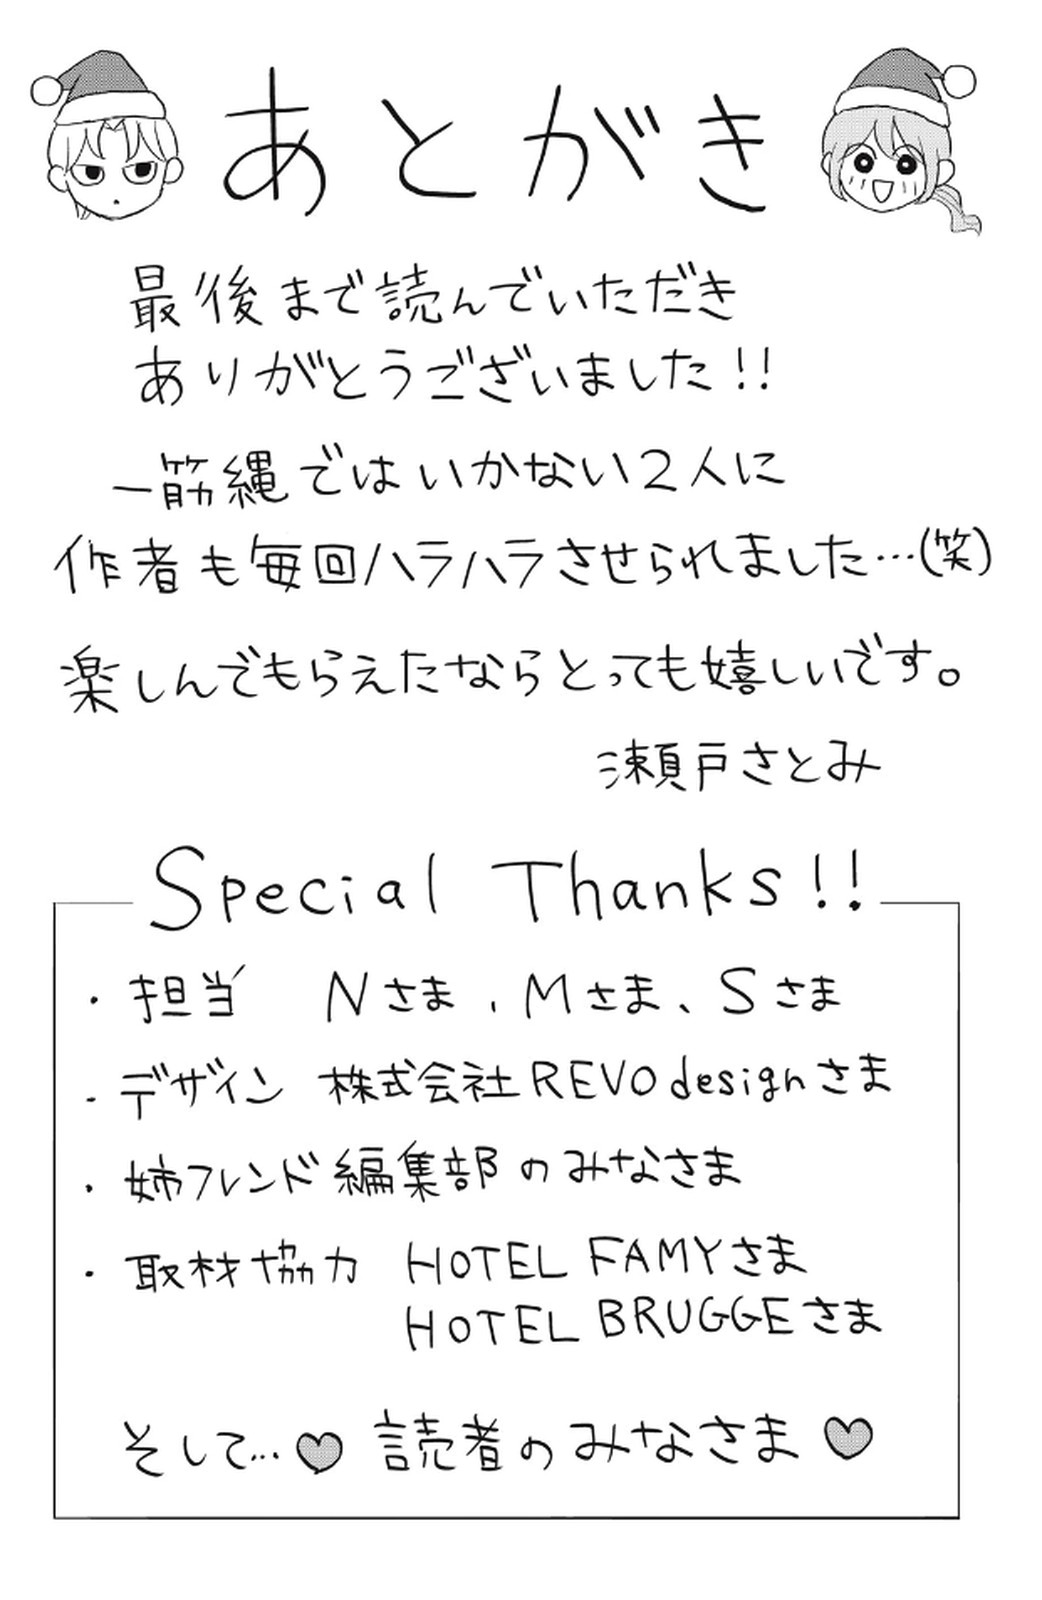 あとがき
最後まで読んでいただき
ありがとうございました!!
一筋縄ではいかない2人に
作者も毎回ハラハラさせられました…(笑)
楽しんでもらえたならとっても嬉しいです。
瀬戸さとみ
Special Thanks!!
・担当 Nさま、Mさま、Sさま
・デザイン 株式会社REVOdesignさま
・姉フレンド編集部のみなさま
・取材協力 HOTEL FAMYさま
HOTEL BRUGGEさま
そして…♥ 読者のみなさま♥